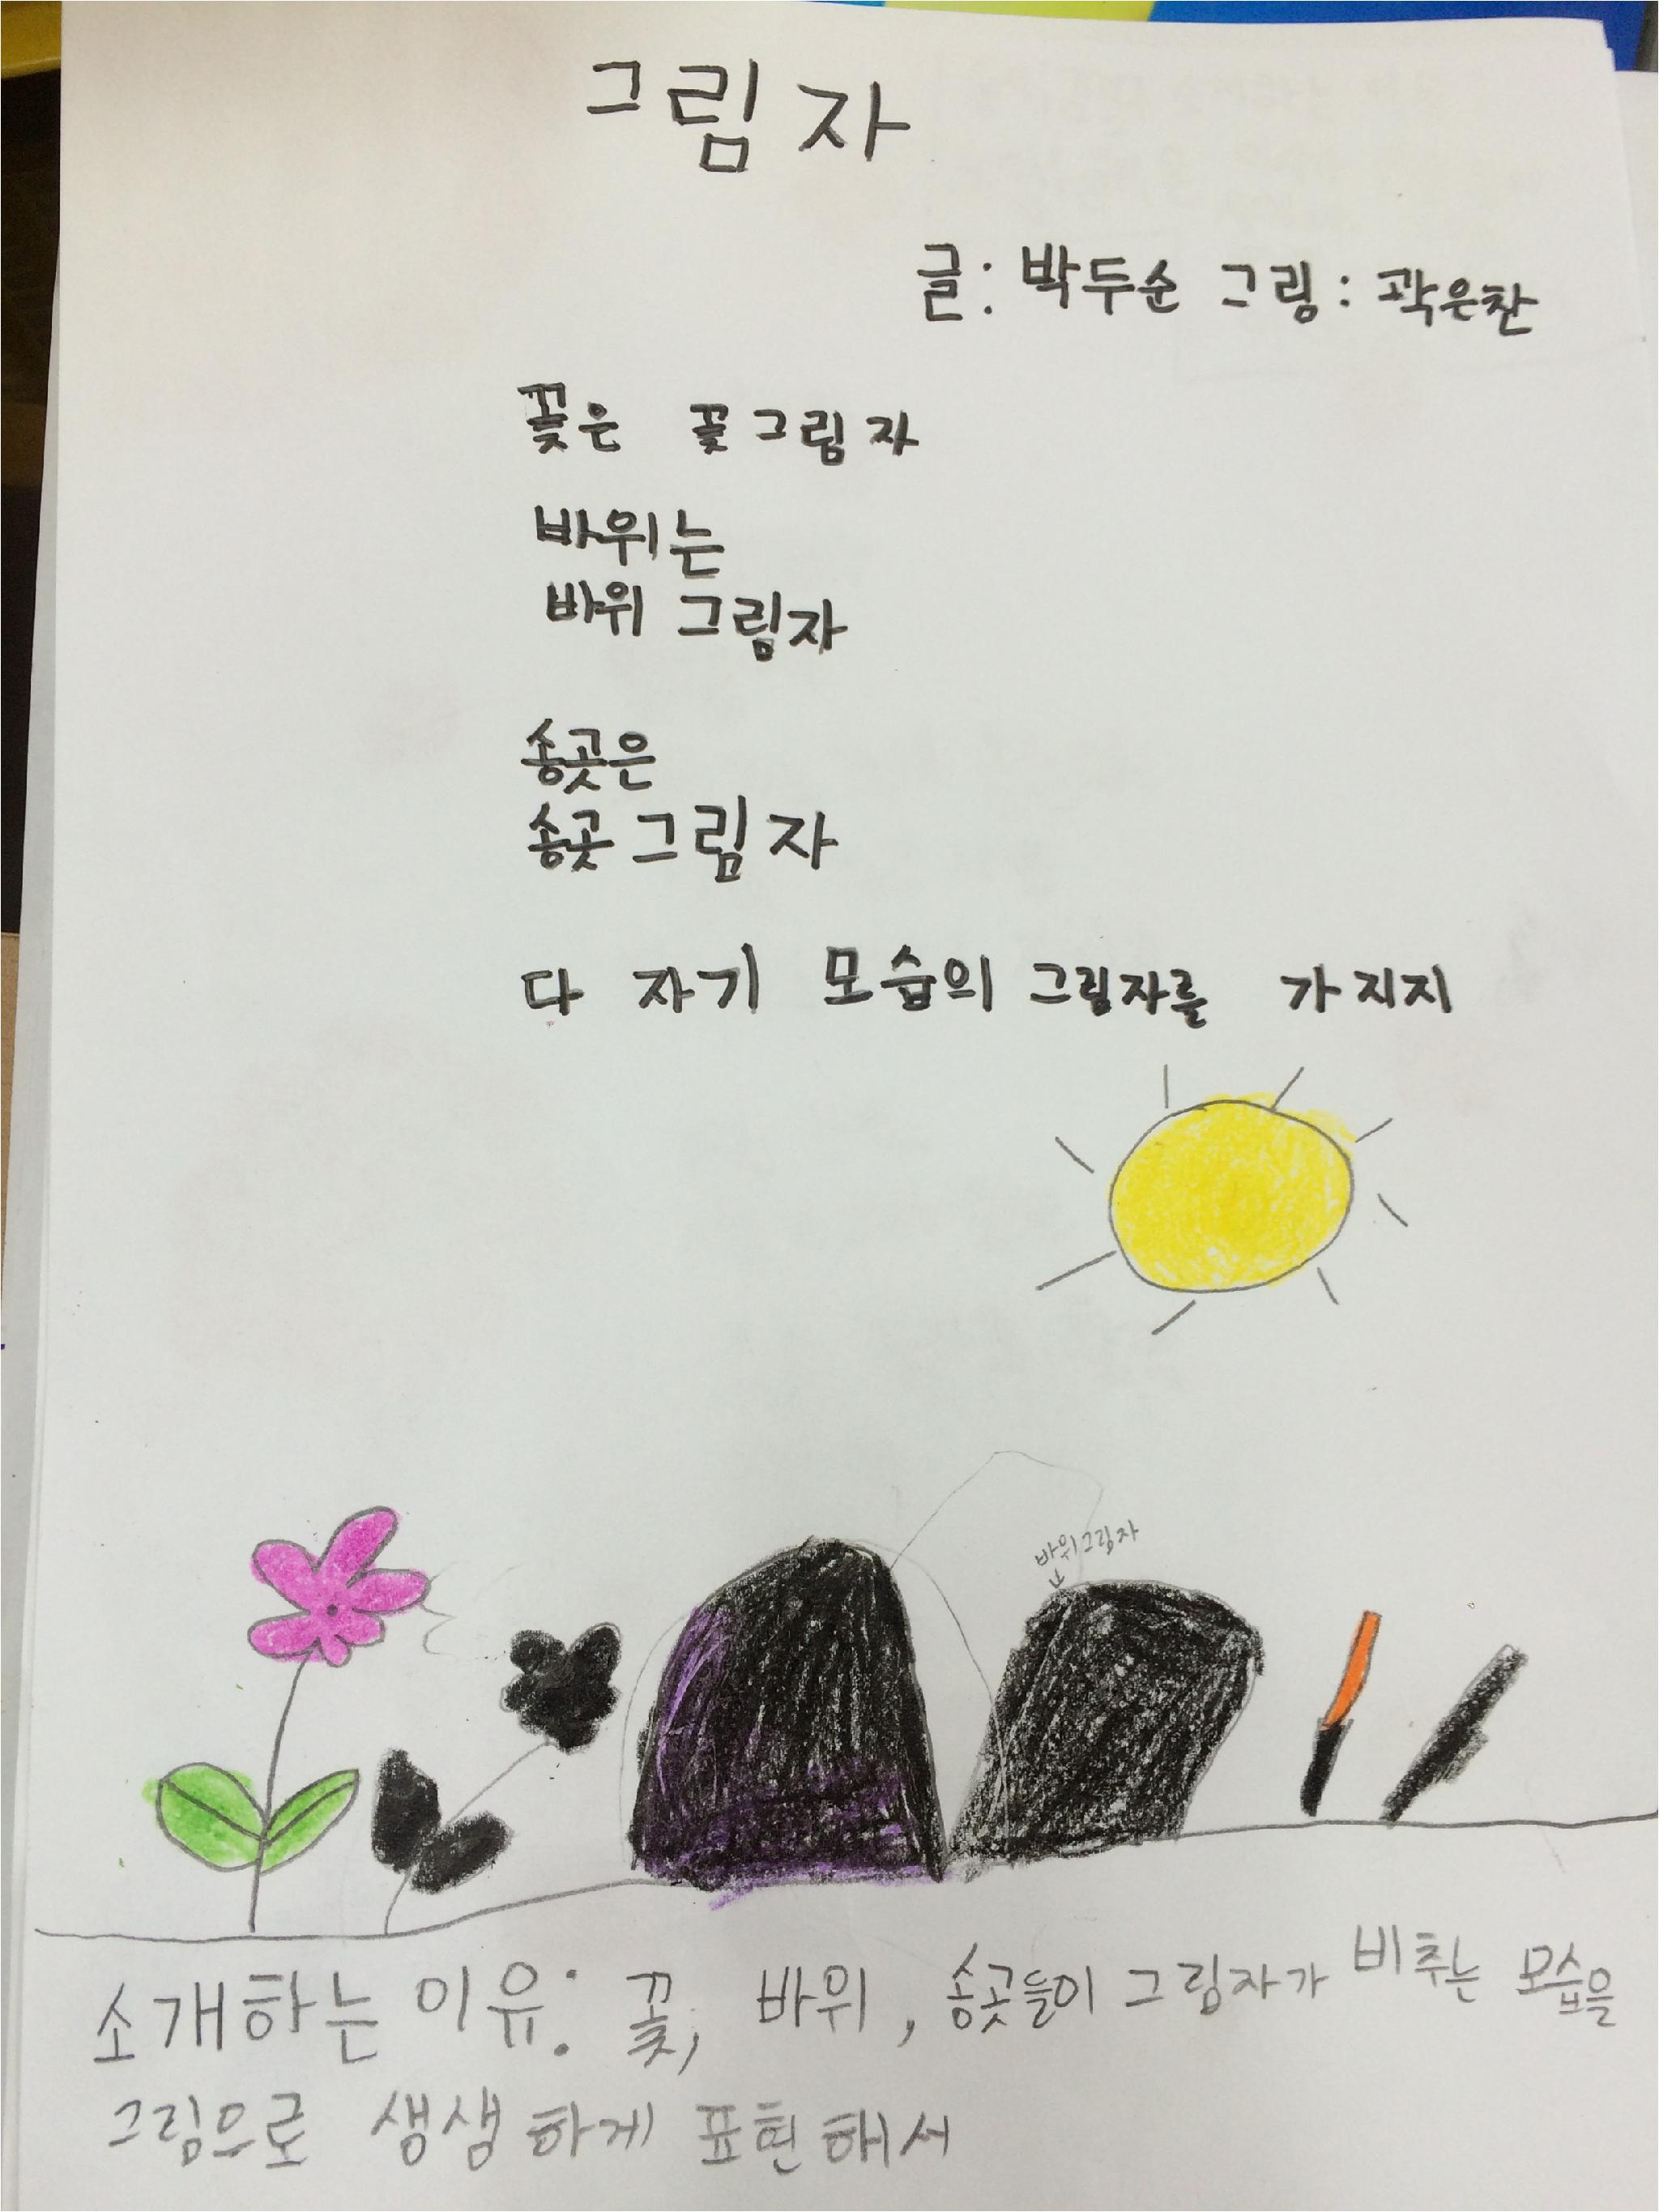 그림자
글: 박두순 그림: 곽은찬
꽃은 꽃그림자
바위는
바위 그림자
송곳은
송곳 그림자
다 자기 모습의 그림자를 가지지
바위그림자
소개하는 이유: 꽃, 바위, 송곳들이 그림자가 비추는 모습을
그림으로 생생하게 표현해서